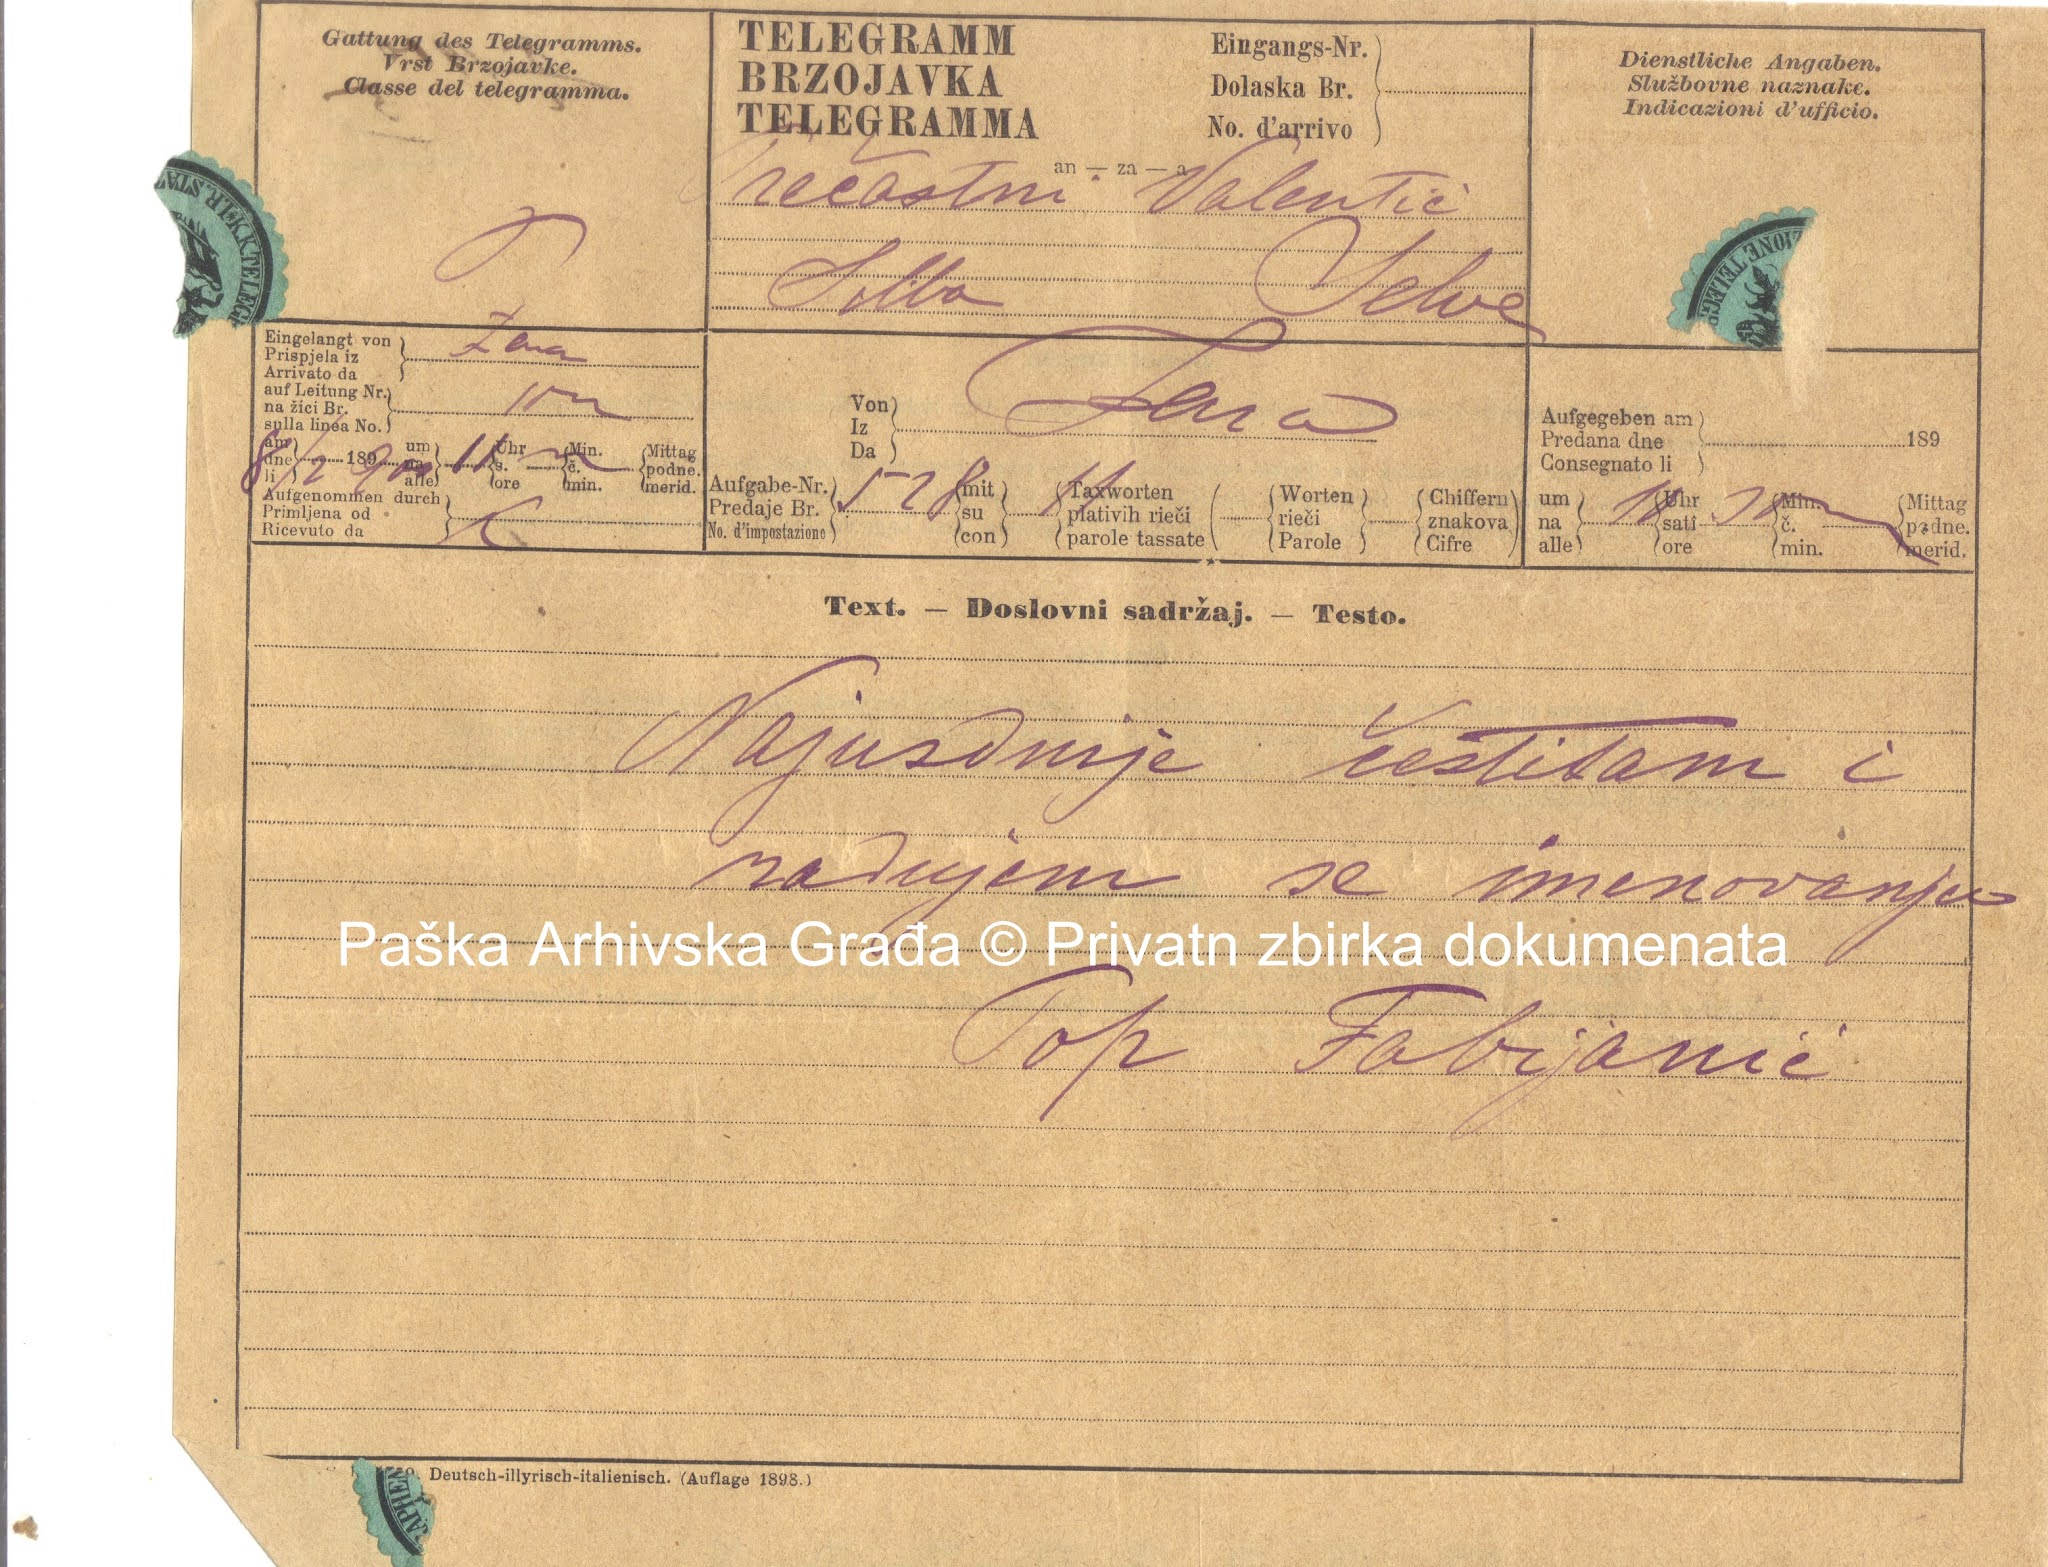 Gattung des Telegramms.
Vrst Brzojavke.
Classe del telegramma.
TELEGRAMM
BRZOJAVKA
TELEGRAMMA
Eingangs-Nr.
Dolaska Br.
No. d'arrivo
Dienstliche Angaben.
Službovne naznake.
Indicazioni d'ufficio.
an — za — a
Prečastni Valentić
Silba Selve
Eingelangt von
Prispjela iz
Arrivato da
Zara
auf Leitung Nr.
na žici Br.
sulla linea No.
am
dne
li
8/2 189 900
um
na
alle
11
Uhr
s.
ore
Min.
č.
min.
Mittag
podne.
merid.
Aufgenommen durch
Primljena od
Ricevuto da
Von
Iz
Da
Zara
Aufgabe-Nr.
Predaje Br.
No. d'impostazione
528
mit
su
con
11
Taxworten
plativih rieči
parole tassate
Worten
rieči
Parole
Chiffern
znakova
Cifre
Aufgegeben am
Predana dne
Consegnato li
189
um
na
alle
10
Uhr
sati
ore
Min.
č.
min.
Mittag
podne.
merid.
Text. — Doslovni sadržaj. — Testo.
Najusdnije čestitam i
radujem se imenovanju
Paška Arhivska Građa © Privatn zbirka dokumenata
Pop Fabijanić
Deutsch-illyrisch-italienisch. (Auflage 1898.)